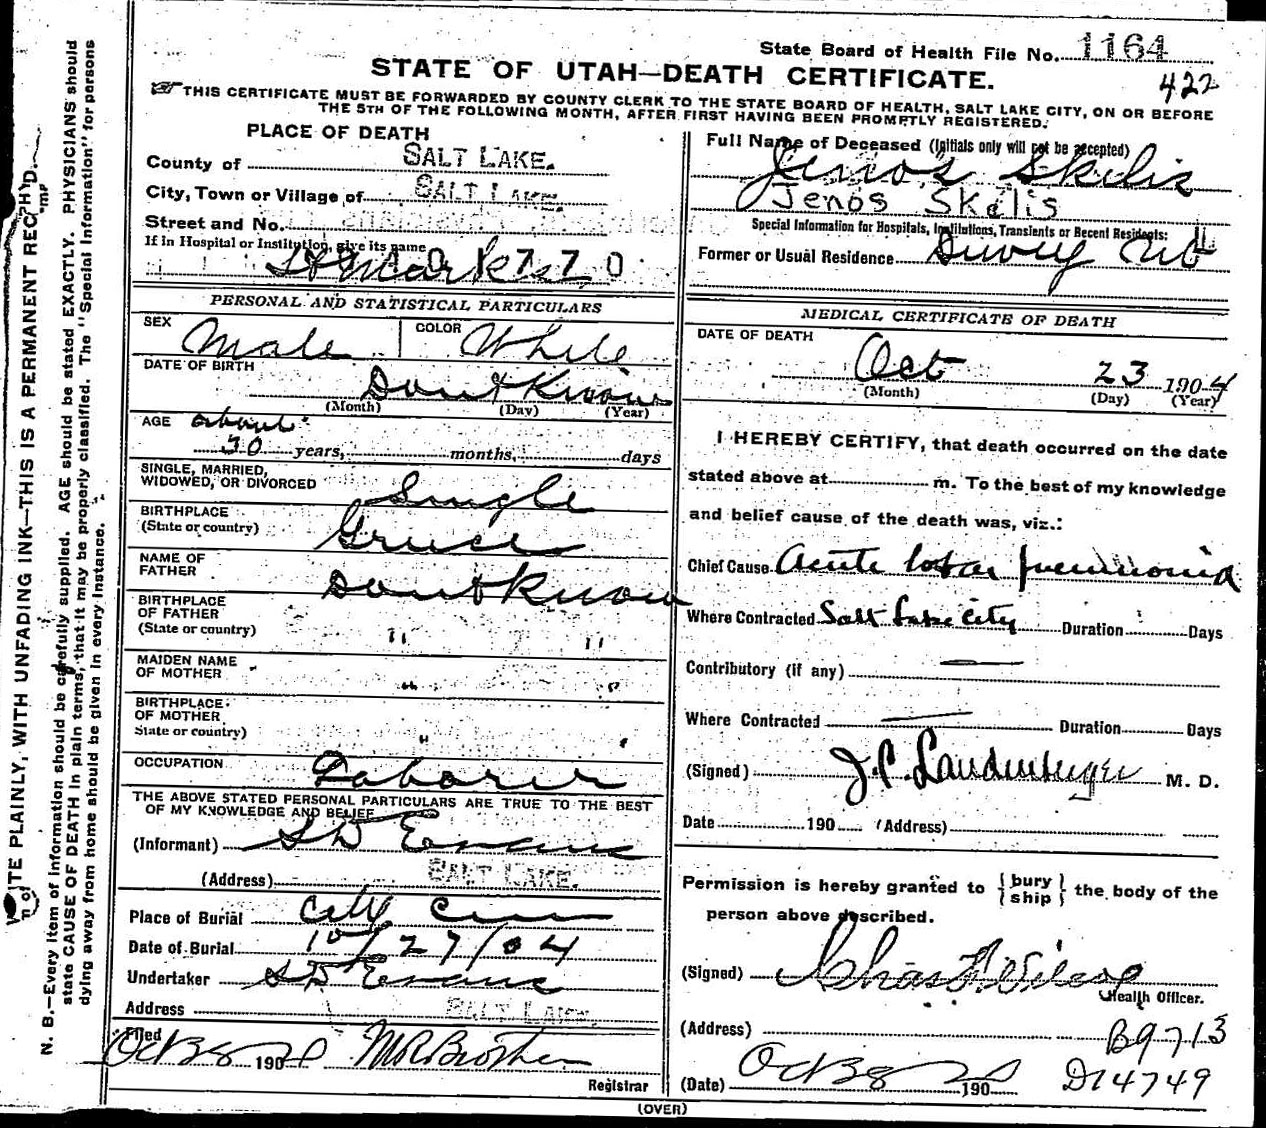 State Board of Health File No. 1164
STATE OF UTAH—DEATH CERTIFICATE.
422
THIS CERTIFICATE MUST BE FORWARDED BY COUNTY CLERK TO THE STATE BOARD OF HEALTH, SALT LAKE CITY, ON OR BEFORE
THE 5TH OF THE FOLLOWING MONTH, AFTER FIRST HAVING BEEN PROMPTLY REGISTERED.
PLACE OF DEATH
County of SALT LAKE.
City, Town or Village of SALT LAKE.
Street and No.
If in Hospital or Institution, give its name
St Marks 1770
Full Name of Deceased (Initials only will not be accepted)
Jenos Skelis
Jenos Skelis
Special Information for Hospitals, Institutions, Transients or Recent Residents:
Former or Usual Residence
PERSONAL AND STATISTICAL PARTICULARS
SEX Male COLOR White
DATE OF BIRTH Dont Know
(Month) (Day) (Year)
AGE about
30 years, months, days
SINGLE, MARRIED,
WIDOWED, OR DIVORCED Single
BIRTHPLACE
(State or country) Greece
NAME OF
FATHER Dont Know
BIRTHPLACE
OF FATHER
(State or country) " "
MAIDEN NAME
OF MOTHER " "
BIRTHPLACE
OF MOTHER
State or country) " "
OCCUPATION Laborer
THE ABOVE STATED PERSONAL PARTICULARS ARE TRUE TO THE BEST
OF MY KNOWLEDGE AND BELIEF
(Informant) S D Evans
(Address) SALT LAKE.
Place of Burial City Cem
Date of Burial 10/27/04
Undertaker S D Evans
Address SALT LAKE.
Filed Oct 190
Registrar
MEDICAL CERTIFICATE OF DEATH
DATE OF DEATH
Oct 23 1904
(Month) (Day) (Year)
I HEREBY CERTIFY, that death occurred on the date
stated above at m. To the best of my knowledge
and belief cause of the death was, viz.:
Chief Cause Acute lobar pneumonia
Where Contracted Salt Lake City Duration Days
Contributory (if any) —
Where Contracted — Duration Days
(Signed) J.P. Landenberger M. D.
Date 190 (Address)
Permission is hereby granted to {bury ship} the body of the
person above described.
(Signed) Chas F Wilcox
Health Officer.
(Address) B9713
(Date) Oct 190 D14749
(OVER)
N. B.—Every item of information should be carefully supplied. AGE should be stated EXACTLY. PHYSICIANS should
state CAUSE OF DEATH in plain terms, that it may be properly classified. The "Special Information" for persons
dying away from home should be given in every instance.
WRITE PLAINLY, WITH UNFADING INK—THIS IS A PERMANENT RECORD.